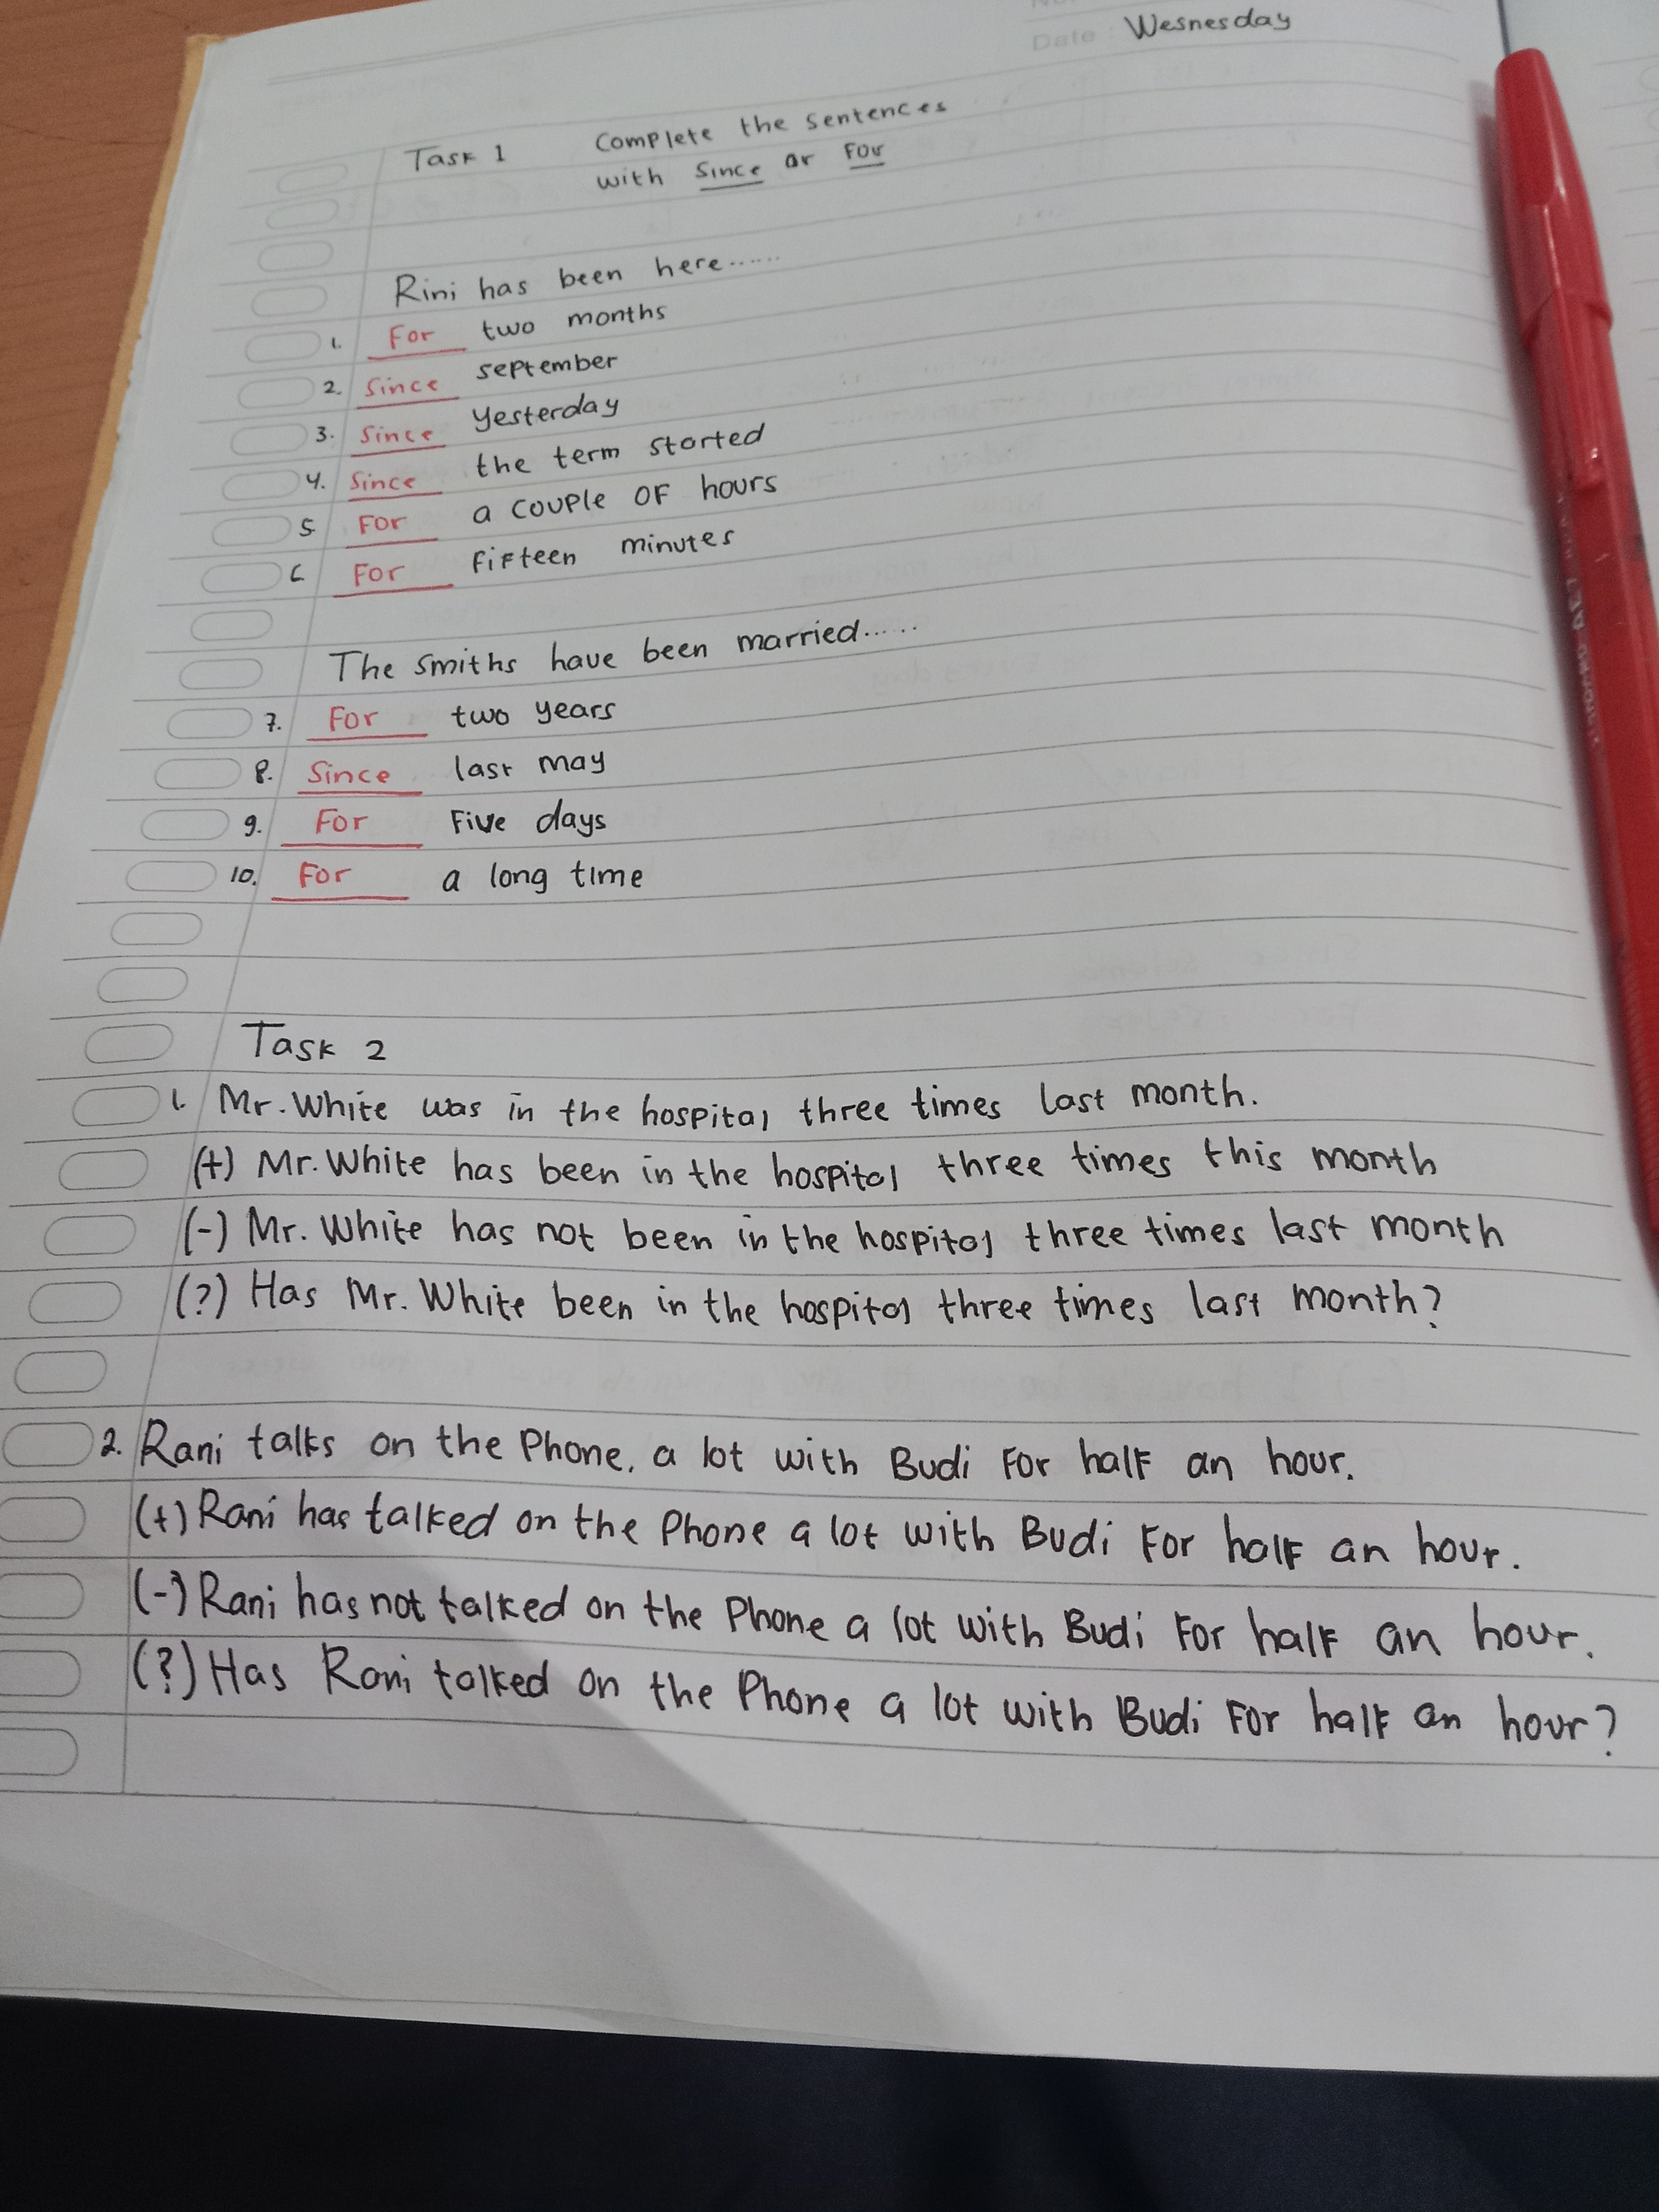 Date : Wesnesday
Task 1 Complete the sentences
with Since or For
Rini has been here......
1. For two months
2. Since september
3. Since yesterday
4. Since the term started
5. For a couple of hours
6. For fifteen minutes
The smiths have been married......
7. For two years
8. Since last may
9. For Five days
10. For a long time
Task 2
1. Mr. White was in the hospital three times last month.
(+) Mr. White has been in the hospital three times this month
(-) Mr. White has not been in the hospital three times last month
(?) Has Mr. White been in the hospital three times last month?
2. Rani talks on the Phone, a lot with Budi For half an hour.
(+) Rani has talked on the Phone a lot with Budi For half an hour.
(-) Rani has not talked on the Phone a lot with Budi For half an hour.
(?) Has Rani talked on the Phone a lot with Budi For half an hour?